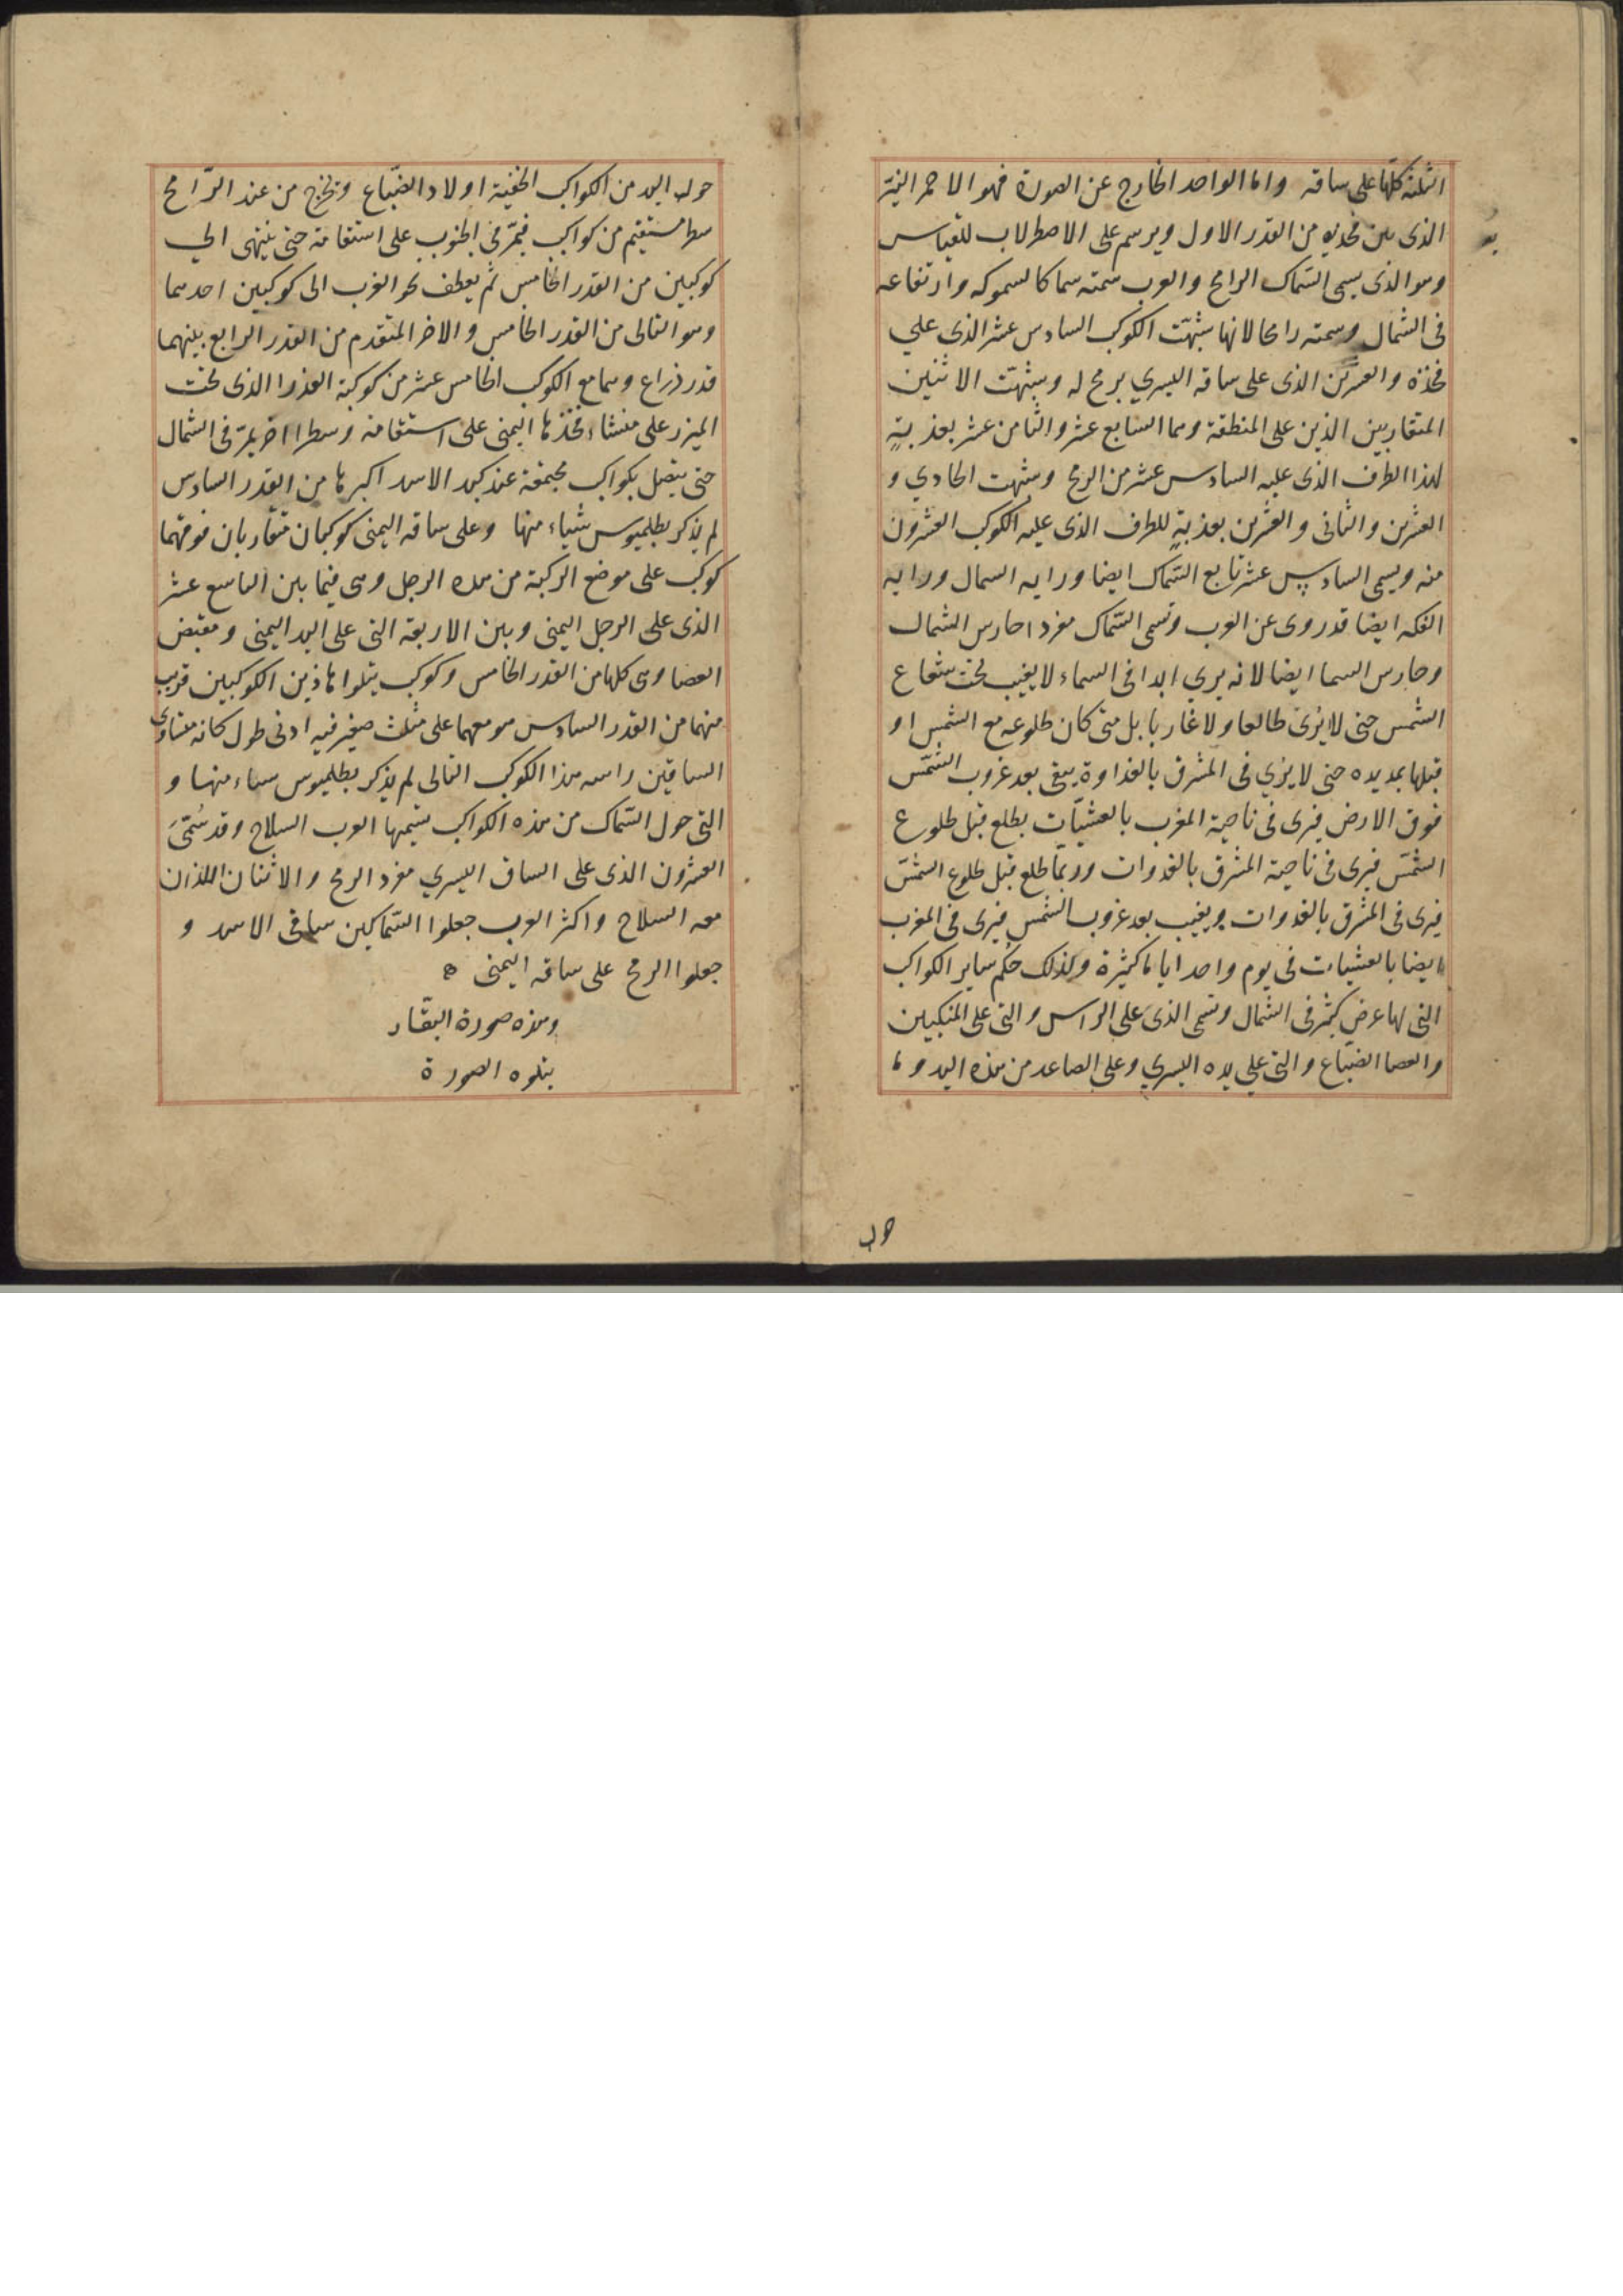 الثلثة كلّها على ساقه واما الواحد الخارج عن الصورة فهو الاحمر النيّر
الذى بين فخذيه من القدر الاول ويرسم على الاصطرلاب للقياس
وهو الذى يسمى السّماك الرامح والعرب سمته سماكا لسموكه وارتفاعه
فى الشمال وسمته رامحا لانها شبّهت الكوكب السادس عشر الذى على
فخذه والعشرين الذى على ساقه اليسري برمح له وشبّهت الاثنين
المتقاربين الذين على المنطقة وهما السابع عشر والثامن عشر بعذبةٍ
لهذا الطرف الذى عليه السادس عشر من الرمح وشبهت الحادي و
العشرين والثانى والعشرين بعذبةٍ للطرف الذى عليه الكوكب العشرون
منه ويسمى السادس عشر تابع السّماك ايضا وراية السمال وراية
الفكه ايضا قد روى عن العرب وتسمى السّماك مفردا حارس الشمال
وحارس السما ايضا لانه يرى ابدا فى السماء لا يغيب تحت شعاع
الشمس حتى لا يُرىَ طالعا ولا غاربا بل متى كان طلوعه مع الشمس او
قبلها بمديده حتى لا يرى فى المشرق بالغداوة يبقى بعد غروب الشمس
فوق الارض فيرى فى ناحية المغرب بالعشيّات يطلع قبل طلوع
الشمس فيرى فى ناحية المشرق بالغدوات وربّما طلع قبل طلوع الشمس
فيرى فى المشرق بالغدوات ويغيب بعد غروب الشمس فيرى فى المغرب
ايضا بالعشيات فى يوم واحد اياما كثيرة وكذلك حكم ساير الكواكب
التى لها عرض كثير فى الشمال وتسمى الذى على الراس والتى على المنكبين
والعصا الضبّاع والتى على يده اليسري وعلى الصاعد من هذه اليد وما
حول
حول اليد من الكواكب الخفيّة اولاد الضبّاع ويخرج من عند الرّامح
سطر مستقيم من كواكب فيمرّ فى الجنوب على استقامة حتى ينتهى الي
كوكبين من القدر الخامس ثم يعطف نحو الغرب الى كوكبين احدهما
وهو التالى من القدر الخامس والاخر المتقدم من القدر الرابع بينهما
قدر ذراع وهما مع الكوكب الخامس عشر من كوكبة العذرا الذى تحت
الميزر على منشاء فخذها اليمنى على استقامة وسطرا اخر يمرّ فى الشمال
حتى يتصل بكواكب مجتمعة عند كبد الاسد اكبرها من القدر السادس
لم يذكر بطلميوس شياء منها وعلى ساقه اليمنى كوكبان متقاربان فوقهما
كوكب على موضع الركبة من هذه الرجل وهى فيما بين التاسع عشر
الذى على الرجل اليمنى وبين الاربعة التى على اليد اليمنى ومقبض
العصا وهى كلها من القدر الخامس وكوكب يتلوا هاذين الكوكبين قريب
منهما من القدر السادس هو معهما على مثلث صغير فيه ادنى طول كانه متساوى
الساقين راسه هذا الكوكب التالى لم يذكر بطلميوس سياء منها و
التى حول السّماك من هذه الكواكب يسميها العرب السلاح وقد سُمّىَ
العشرون الذى على الساق اليسري مفرد الرمح والاثنان اللذان
معه السلاح واكثر العرب جعلوا السّماكين ساقى الاسد و
جعلوا الرمح على ساقه اليمنى ه
وهذه صورة البقّار
يتلوه الصورة